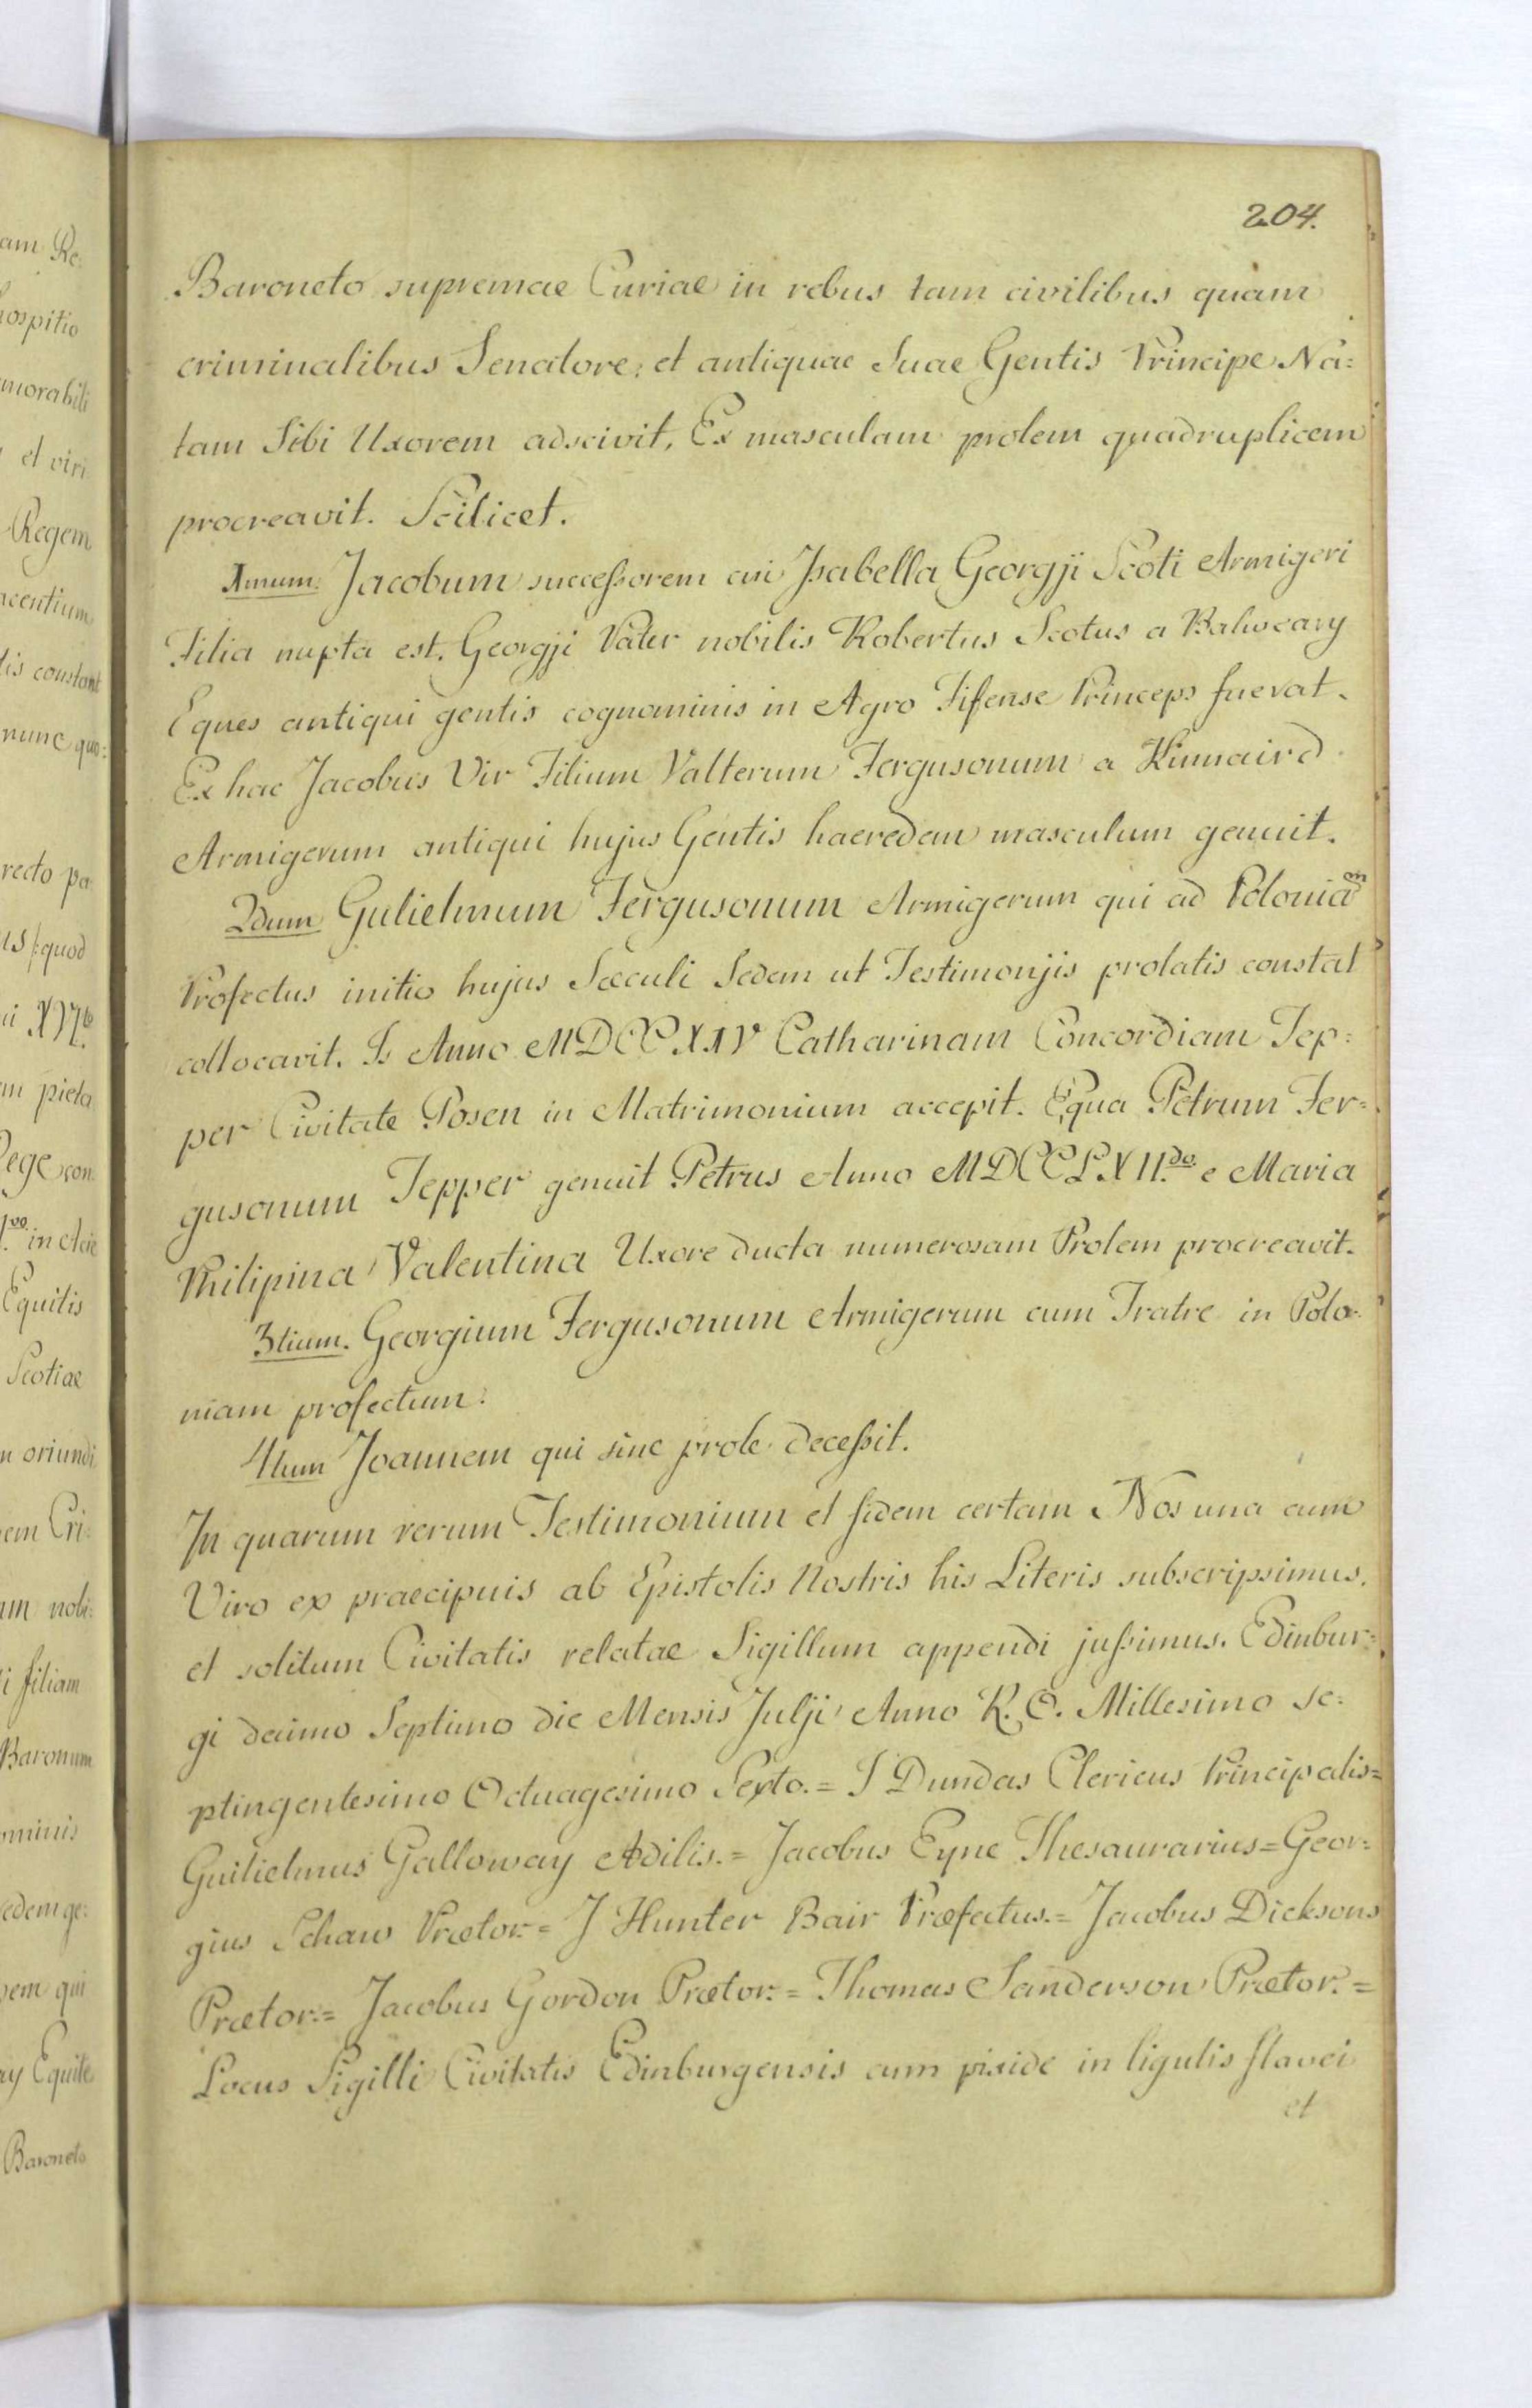 204.
Baroneto supremae Curiae in rebus tam civilibus quam
criminalibus Senatore, et antiquae Suae Gentis Principe Na=
tam Sibi Uxorem adscivit. Ex masculam prolem quadruplicem
procreavit. Scilicet.
1mum. Jacobum successorem cui Isabella Georgji Scoti Armigeri
Filia nupta est. Georgji Pater nobilis Robertus Scotus a Balweary
Eques antiqui gentis cognominis in Agro Fifense Princeps fuerat.
Ex hac Jacobus Vir Filium Valterum Fergusonum a Kinnaird
Armigerum antiqui hujus Gentis haeredem masculum genuit.
2dum Gulielmum Fergusonum Armigerum qui ad Poloniam
Profectus initio hujus Sæculi Sedem ut Testimonjis prolatis constat
collocavit. Is Anno MDCCXXV Catharinam Concordiam Tep=
per Civitate Posen in Matrimonium accepit. E qua Petrum Fer=
gusonum Tepper genuit Petrus Anno MDCCLXII.do e Maria
Philipina Valentina Uxore ducta numerosam Prolem procreavit.
3tium. Georgium Fergusonum Armigerum cum Fratre in Polo=
niam profectum.
4tum Joannem qui sine prole decessit.
In quarum rerum Testimonium et fidem certam Nos una cum
Viro ex praecipuis ab Epistolis Nostris his Literis subscripsimus.
et solitum Civitatis relatae Sigillum appendi jussimus. Edinbur=
gi decimo Septimo die Mensis Julji Anno R. O. Millesimo se=
ptingentesimo Octuagesimo Sexto.= J Dundas Clericus Principalis=
Guilielmus Galloway Ædilis.= Jacobus Eyne Thesaurarius=Geor=
gius Schaw Prætor.= J Hunter Bair Præfectus.= Jacobus Dicksons
Prætor.= Jacobus Gordon Prætor.= Thomas Sanderson Prætor.=
Locus Sigilli Civitatis Edinburgensis cum pixide in ligulis flavei
et
am Re:
ospitio
morabili
et viri
Regem
centium
constant
nunc quo:
recto pa
quod
pieta
ege con
in Acie
Equitis
Scotiae
oriundi
em Cri:
nobi:
filiam
Baronum
ominis
edem ge:
qui
Equite
Baroneto